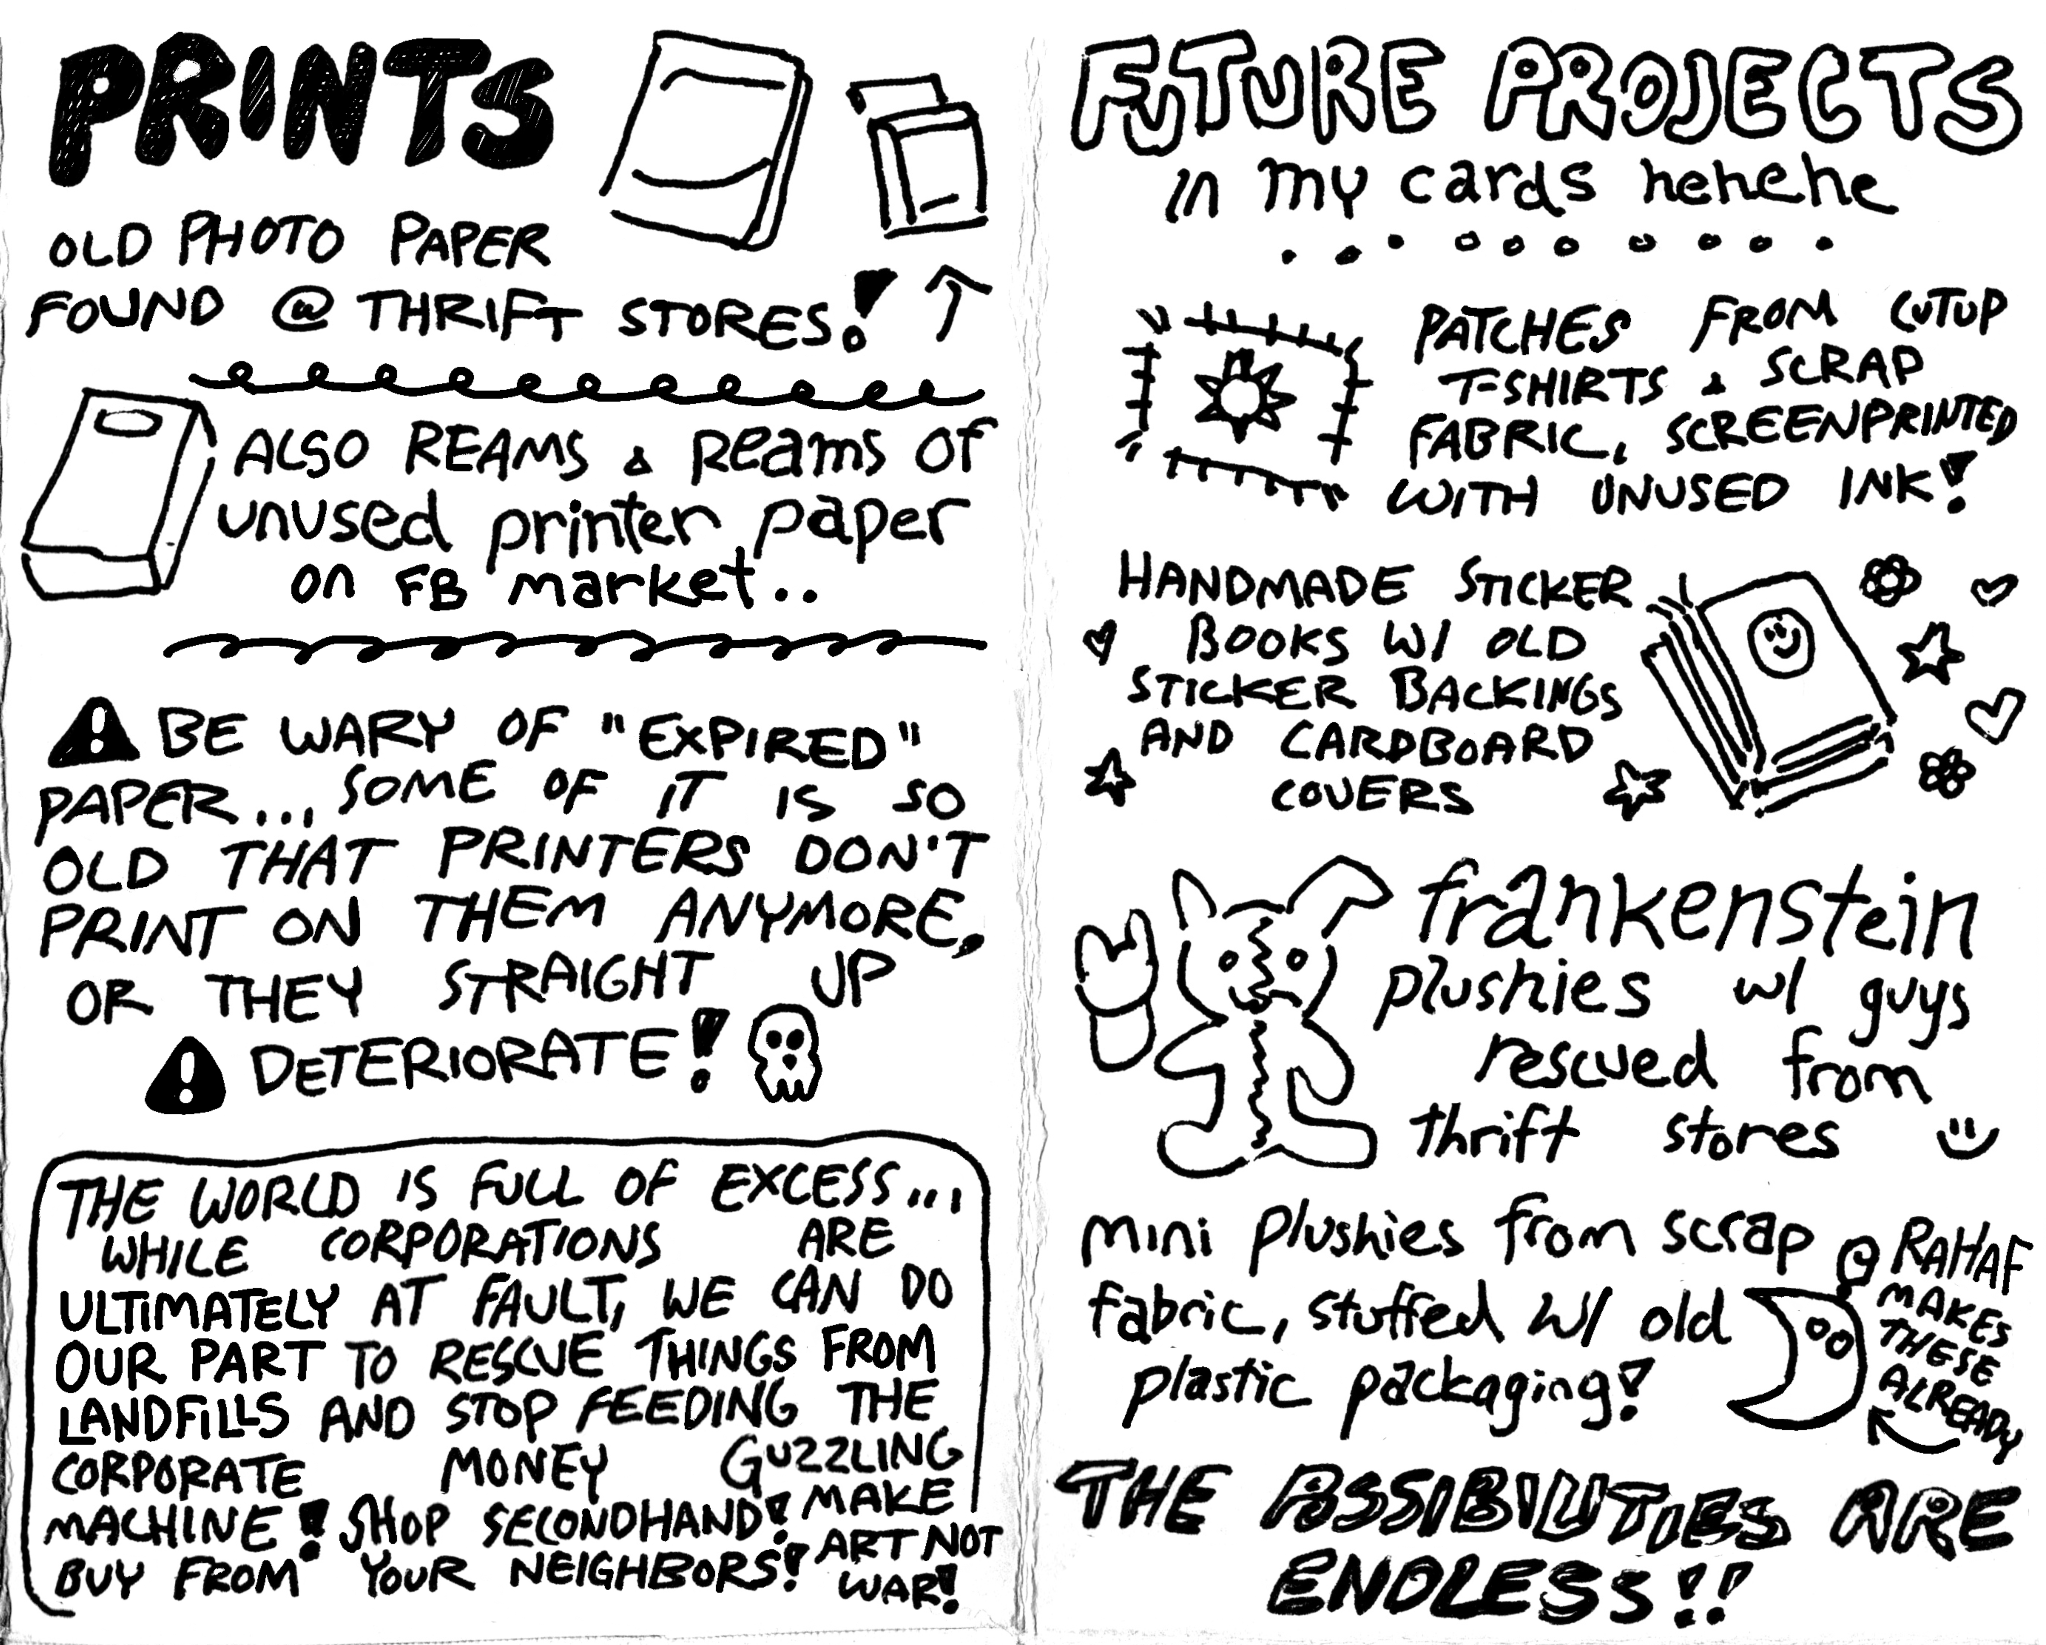 PRINTS
OLD PHOTO PAPER
FOUND @ THRIFT STORES!
ALSO REAMS & Reams of
unused printer paper
on FB market..
BE WARY OF "EXPIRED"
PAPER... SOME OF IT IS SO
OLD THAT PRINTERS DON'T
PRINT ON THEM ANYMORE,
OR THEY STRAIGHT UP
DETERIORATE!
THE WORLD IS FULL OF EXCESS...
WHILE CORPORATIONS ARE
ULTIMATELY AT FAULT, WE CAN DO
OUR PART TO RESCUE THINGS FROM
LANDFILLS AND STOP FEEDING THE
CORPORATE MONEY GUZZLING
MACHINE! SHOP SECONDHAND!
BUY FROM YOUR NEIGHBORS!
MAKE
ART NOT
WAR!
FUTURE PROJECTS
in my cards hehehe
PATCHES FROM CUTUP
T-SHIRTS & SCRAP
FABRIC, SCREENPRINTED
WITH UNUSED INK!
HANDMADE STICKER
BOOKS W/ OLD
STICKER BACKINGS
AND CARDBOARD
COVERS
frankenstein
plushies w/ guys
rescued from
thrift stores
mini plushies from scrap
fabric, stuffed w/ old
plastic packaging!
RAHAF
MAKES
THESE
ALREADY
THE POSSIBILITIES ARE
ENDLESS!!